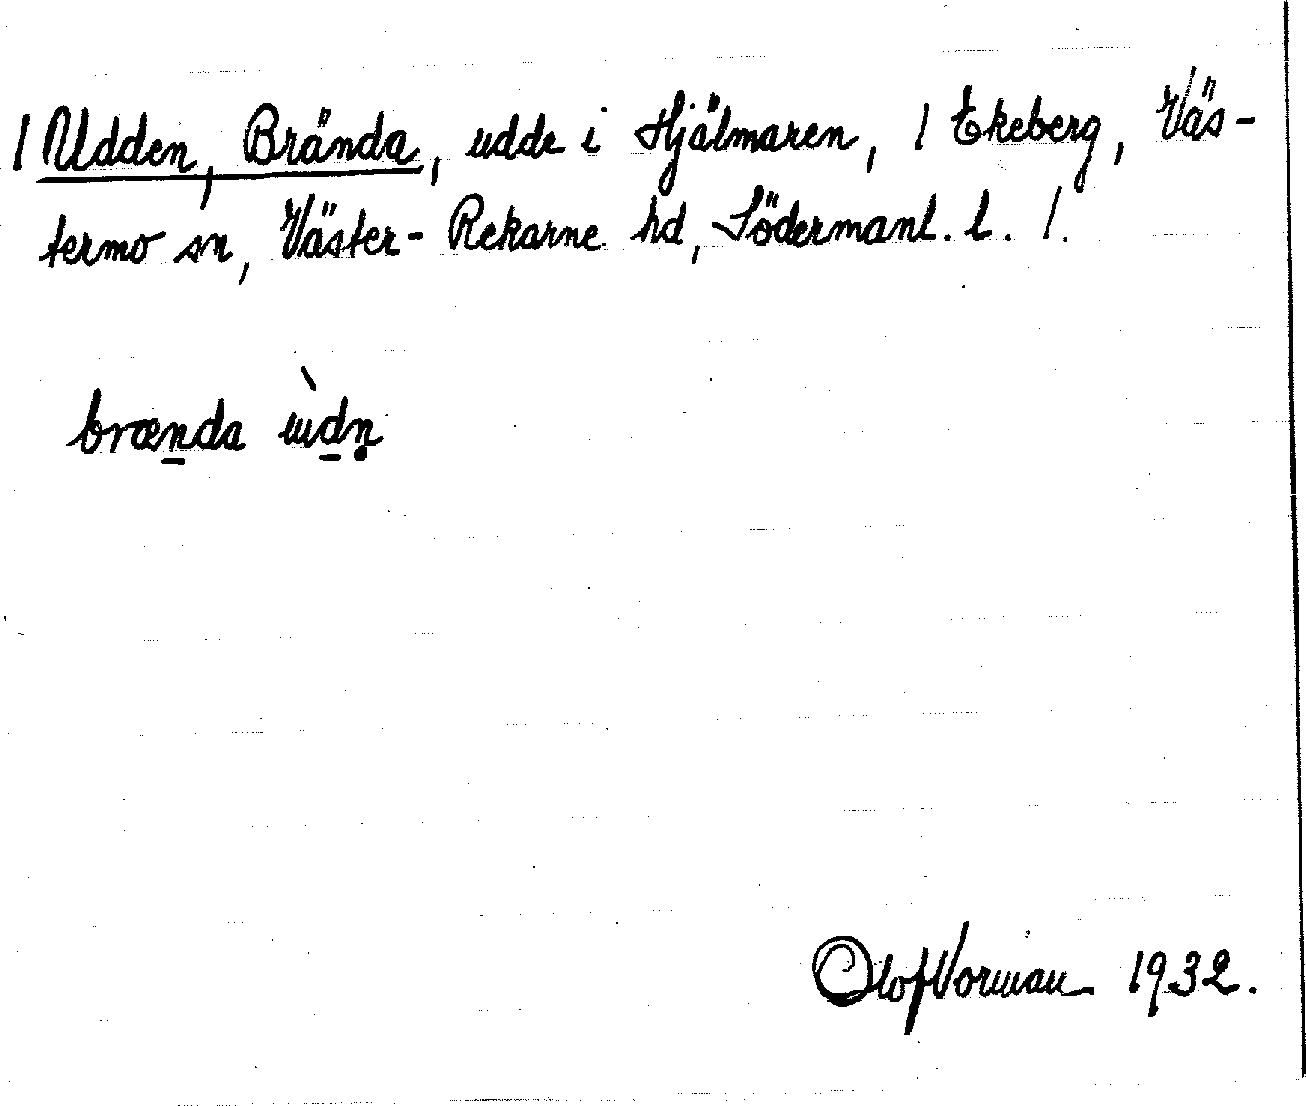 / Udden, Brända, udde i Hjälmaren, / Ekeberg, Väs-
termo sn, Väster-Rekarne hd, Södermanl. l. /.
brænda ùdn̥
Olof Vorman 1932.